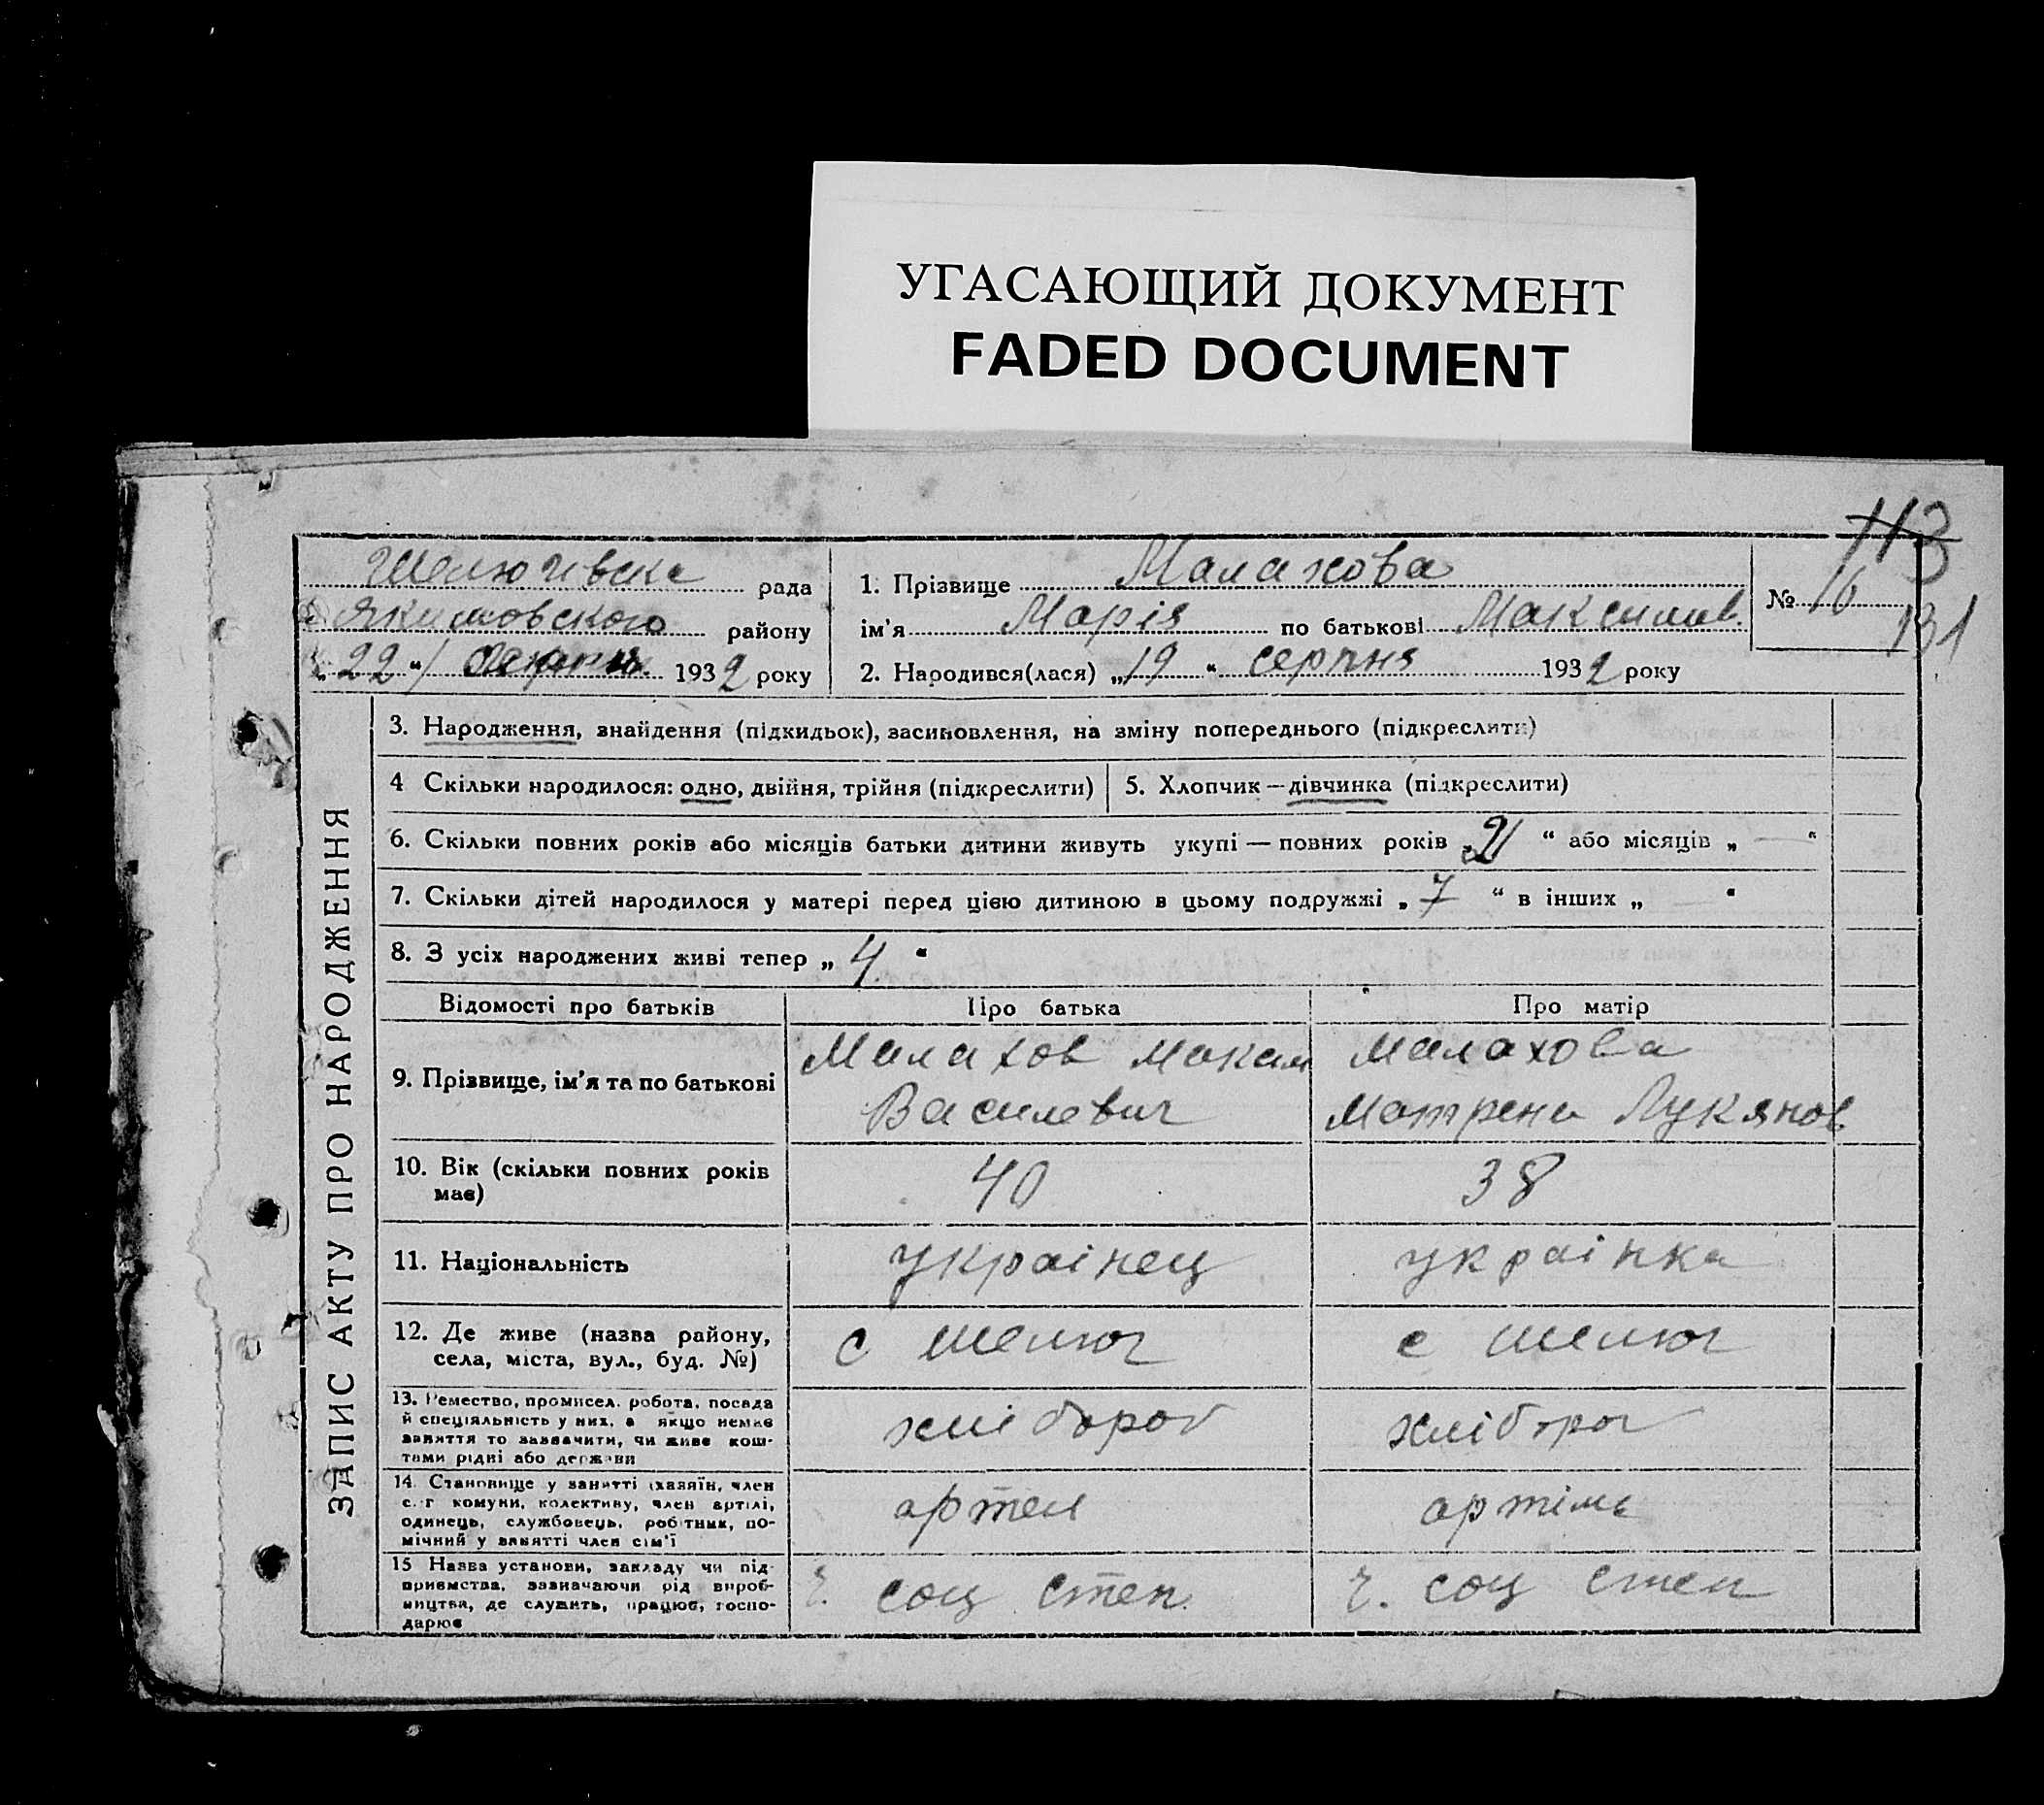 УГАСАЮЩИЙ ДОКУМЕНТ
FADED DOCUMENT
113
131
Шелюгівска рада
Якимовського району
„22“ 1932 року
1. Прізвище Малахова
ім’я Марія по батькові Максимив.
2. Народився(лася) „19“ серпня 1932 року
№ 16
ЗАПИС АКТУ ПРО НАРОДЖЕННЯ
3. Народження, знайдення (підкидьок), засиновлення, на зміну попереднього (підкреслити)
4 Скільки народилося: одно, двійня, трійня (підкреслити)
5. Хлопчик — дівчинка (підкреслити)
6. Скільки повних років або місяців батьки дитини живуть укупі — повних років „21“ або місяців „—“
7. Скільки дітей народилося у матері перед цією дитиною в цьому подружжі „7“ в інших „—“
8. З усіх народжених живі тепер „4“
Відомості про батьків
Про батька
Про матір
9. Прізвище, ім’я та по батькові
Малахов Максим
Василевич
Малахова
Матрена Лукянов
10. Вік (скільки повних років
має)
40
38
11. Національність
украінец
украінка
12. Де живе (назва району,
села, міста, вул., буд. №)
с Шелюг
с Шелюг
13. Ремество, промисел, робота, посада
й спеціяльність у них, а якщо немає
заняття то зазначити, чи живе кош-
тами рідні або держави
хлібороб
хлібороб
14. Становище у занятті (хазяїн, член
с.-г комуни, колективу, член артілі,
одинець, службовець, робітник, по-
мічний у занятті член сім’ї
артел
артіль
15 Назва установи, закладу чи під-
приємства, зазначаючи рід вироб-
ництва, де служить, працює, госпо-
дарює
соц степ
соц степ